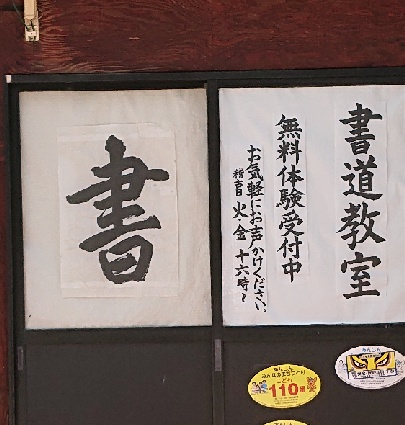 書道教室
無料体験受付中
お気軽にお声かけください。
稽古日 火・金 十六時〜
書
110